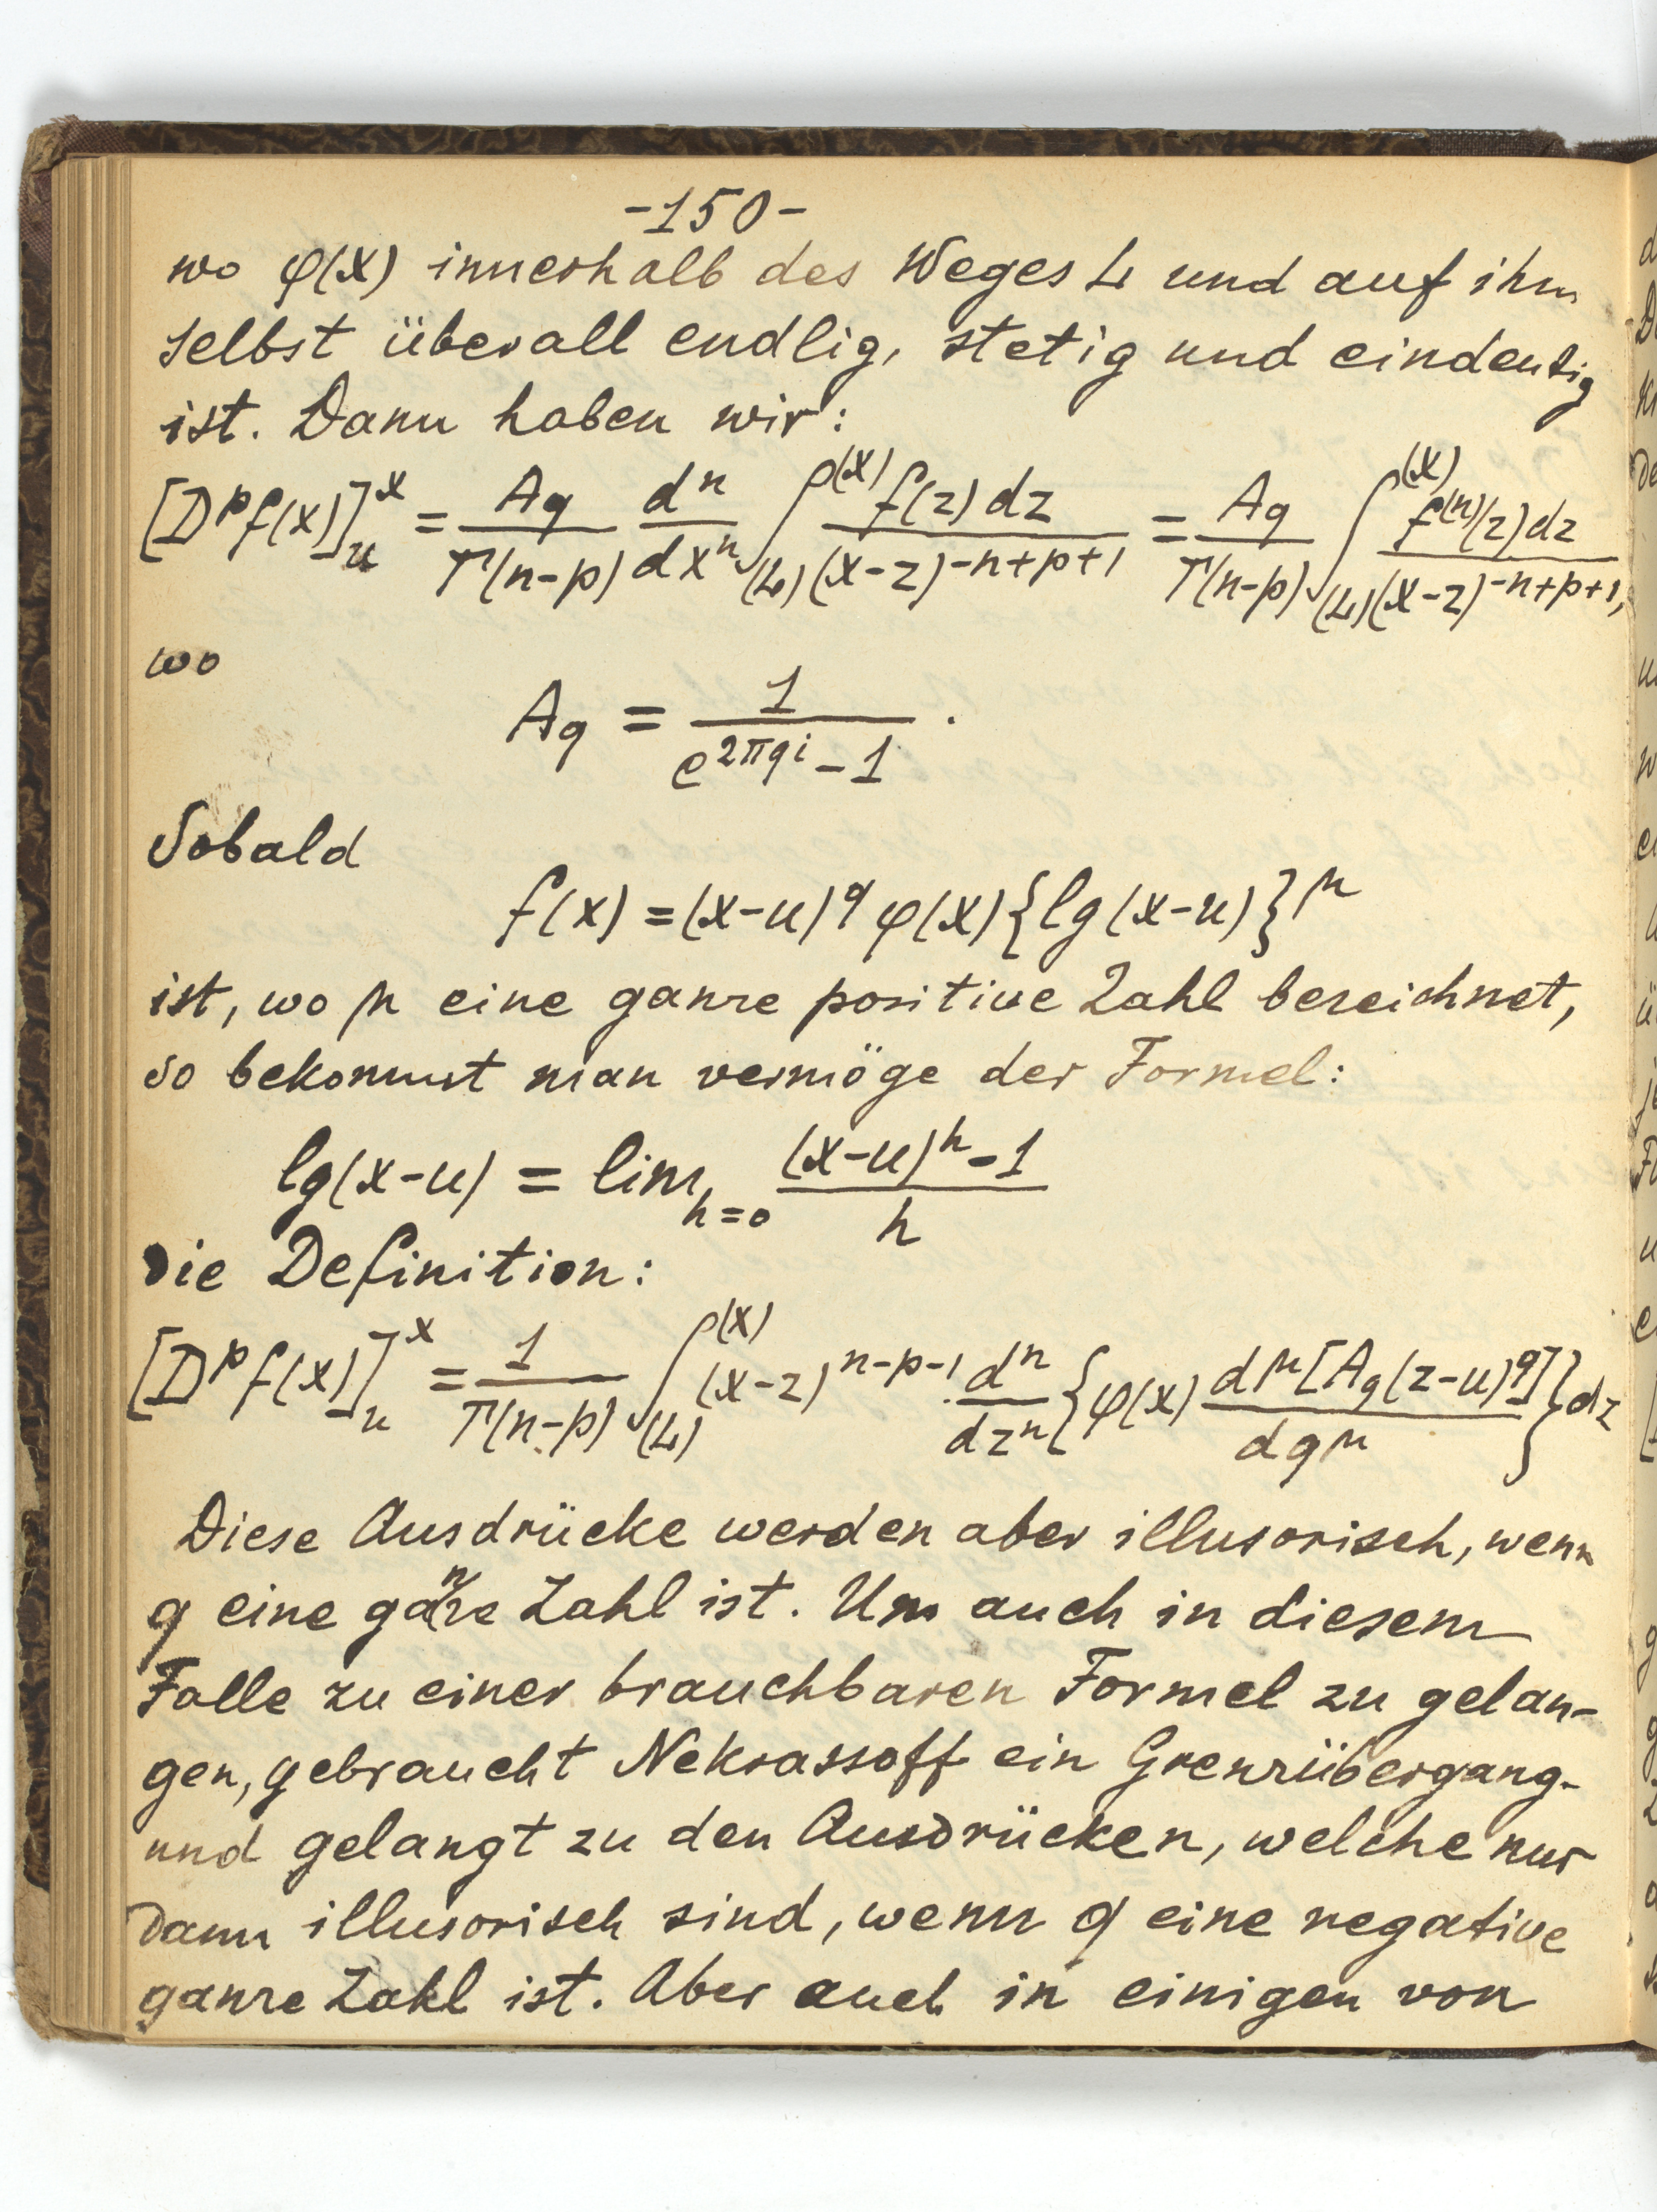 -150-
wo φ(x) innerhalb des Weges L und auf ihm
selbst überall endlig, stetig und eindeutig
ist. Dann haben wir:
[D^p f(x)]_u^x = A_q/Γ(n-p) d^n/dx^n ∫_(L)^(x) f(z)dz/(x-z)^{-n+p+1} = A_q/Γ(n-p) ∫_(L)^(x) f^(n)(z)dz/(x-z)^{-n+p+1},
wo
A_q = 1/(e^{2πqi} - 1).
Sobald
f(x) = (x-u)^q φ(x){lg(x-u)}^μ
ist, wo μ eine ganze positive Zahl bezeichnet,
so bekommt man vermöge der Formel:
lg(x-u) = lim_{h=0} ((x-u)^h - 1)/h
die Definition:
[D^p f(x)]_u^x = 1/Γ(n-p) ∫_(L)^(x) (x-z)^{n-p-1} · d^n/dz^n {φ(x) d^μ[A_q(z-u)^q]/dq^μ} dz
Diese Ausdrücke werden aber illusorisch, wenn
q eine ganze Zahl ist. Um auch in diesem
Falle zu einer brauchbaren Formel zu gelan-
gen, gebraucht Nekrassoff ein Grenzübergang
und gelangt zu den Ausdrücken, welche nur
dann illusorisch sind, wenn q eine negative
ganze Zahl ist. Aber auch in einigen von